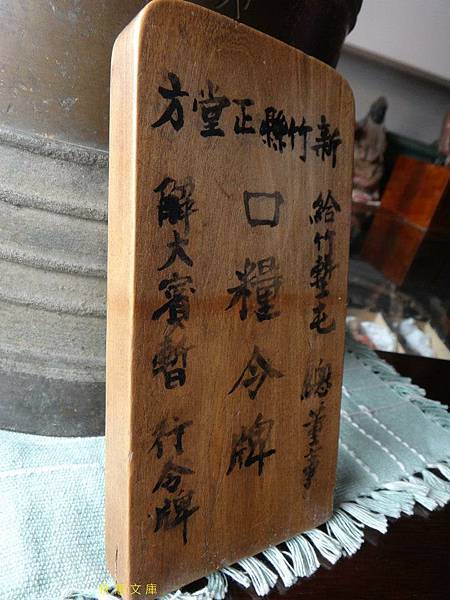 新竹縣正堂方
給竹塹屯 總董事
口糧令牌
解大賓暫 行令牌
文庫